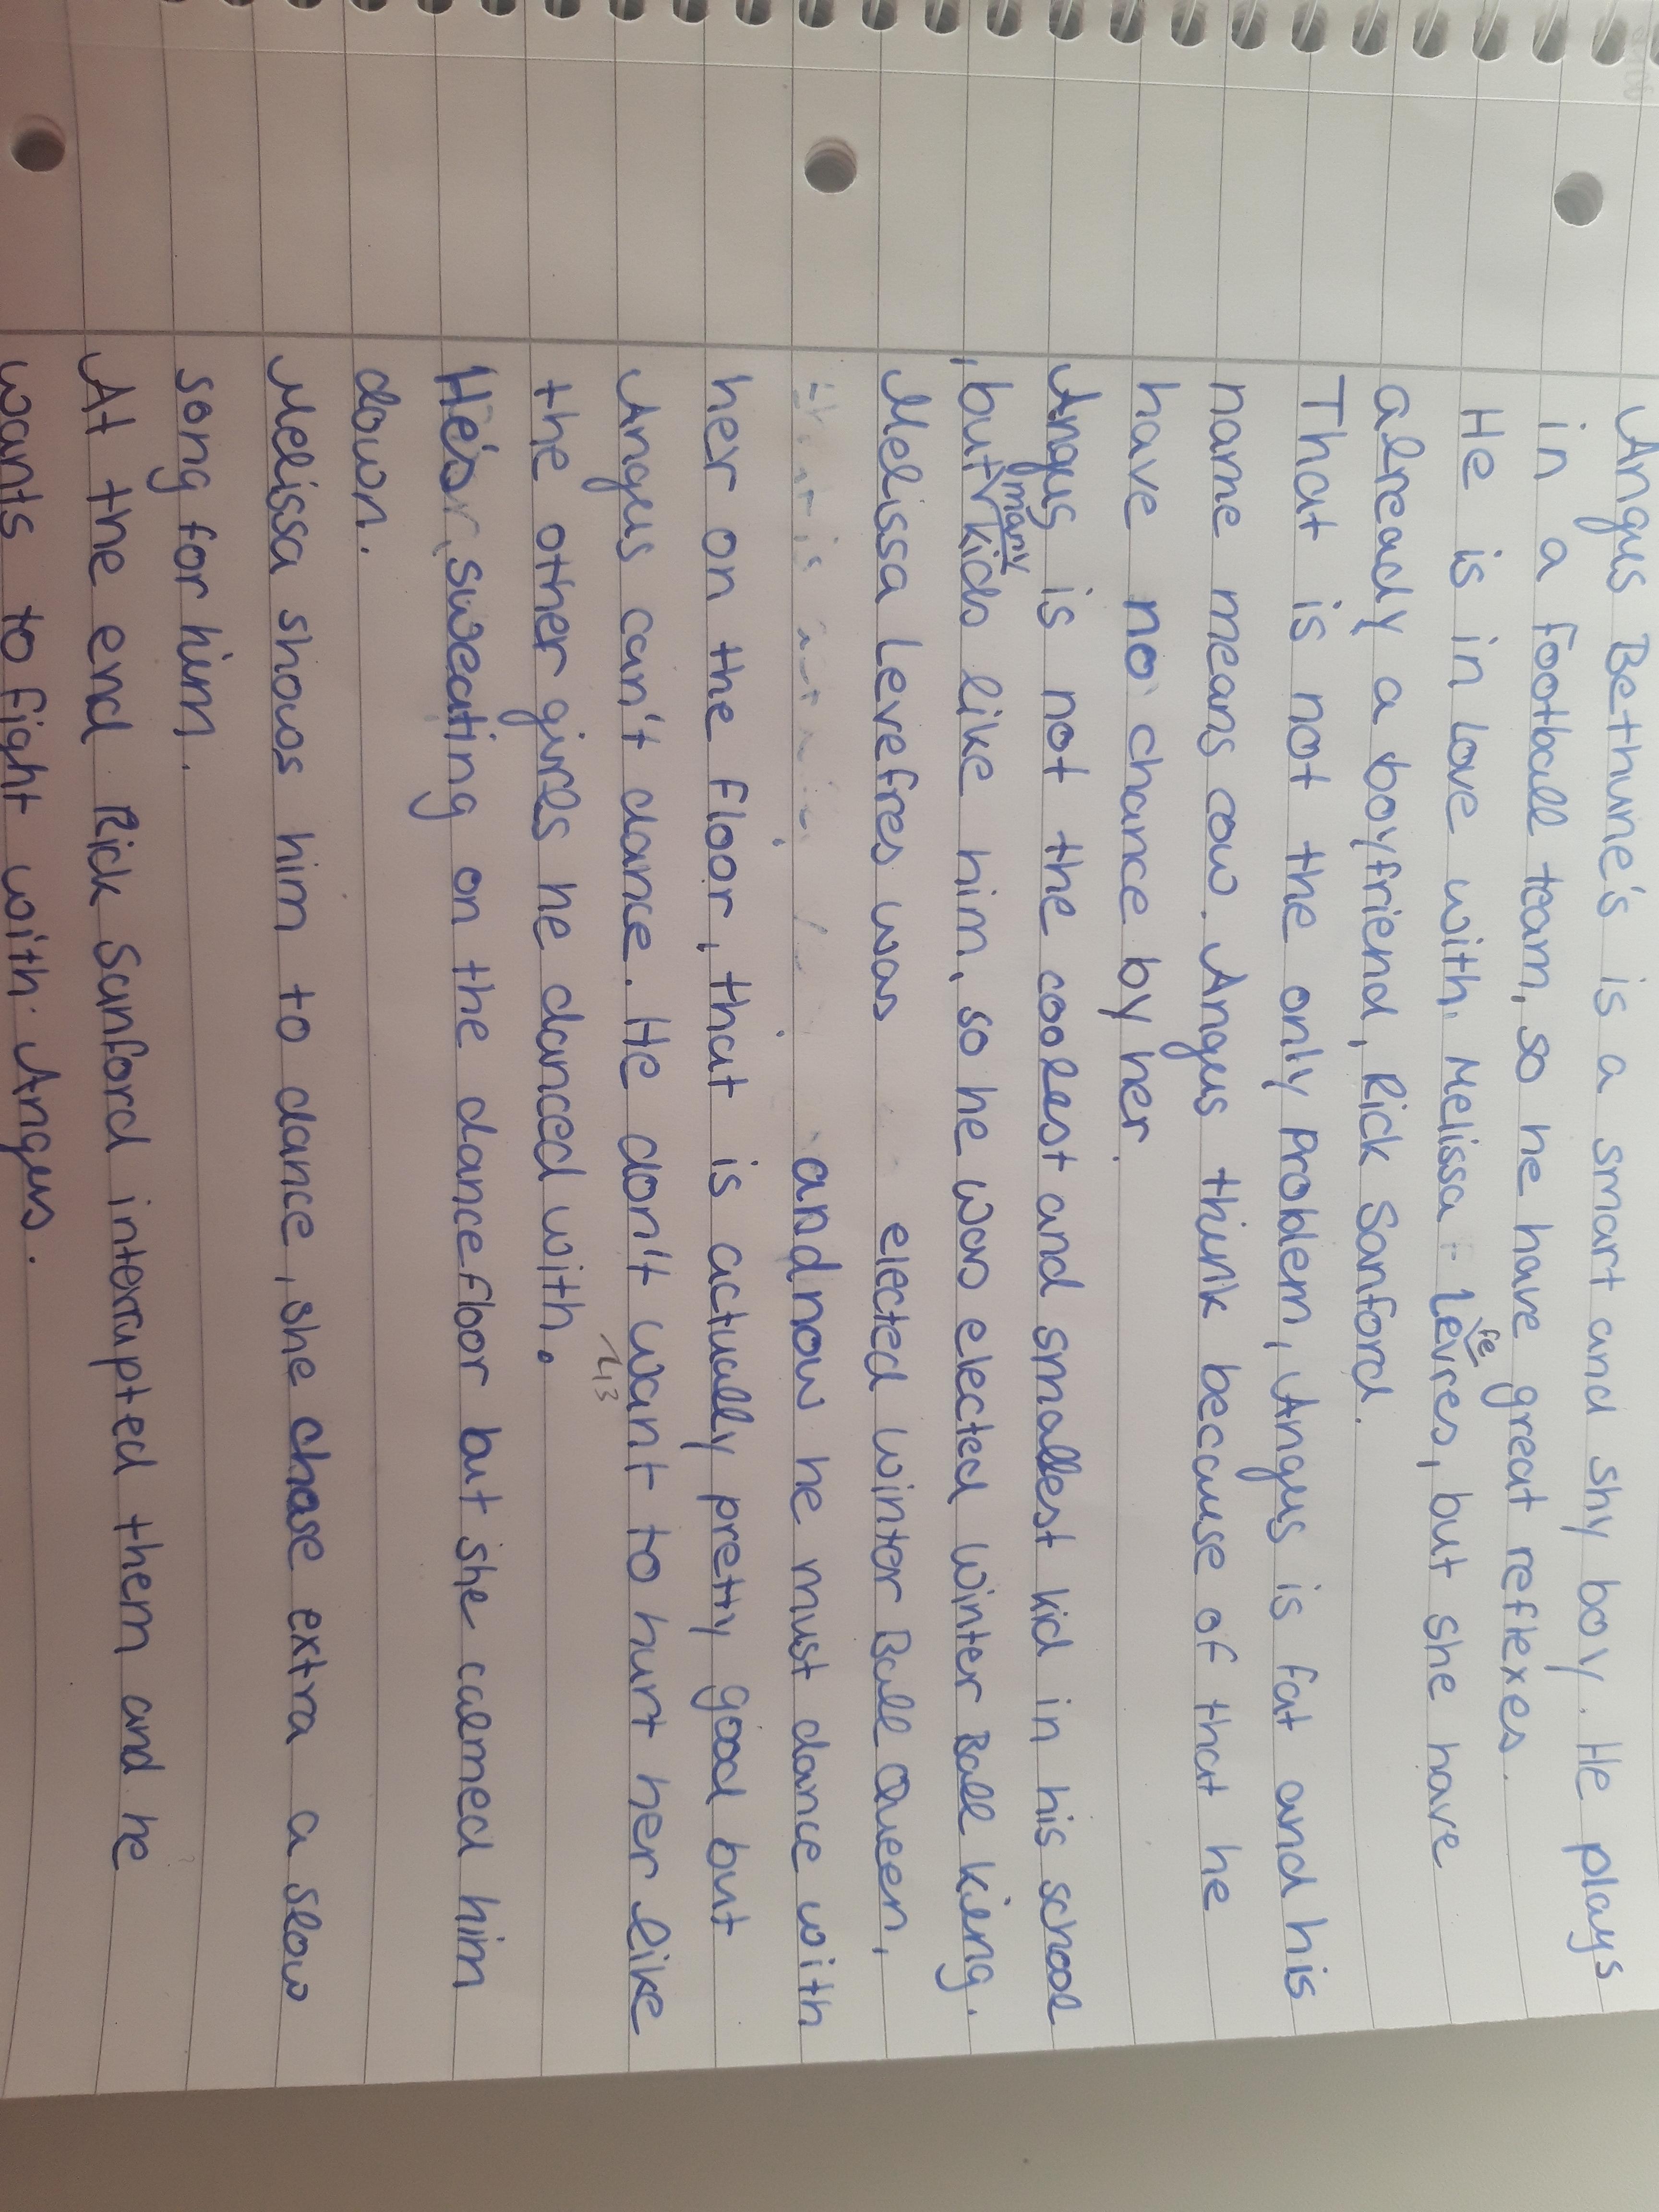 Angus Bethune's is a smart and shy boy. He plays
in a football team, so he have great reflexes.
He is in love with Melissa Lefevres, but she have
already a boyfriend, Rick Sanford.
That is not the only problem, Angus is fat and his
name means cow. Angus think because of that he
have no chance by her.
Angus is not the coolest and smallest kid in his school
, but many kids like him, so he was elected Winter Ball King.
Melissa Levefres was elected Winter Ball Queen,
and now he must dance with
her on the floor, that is actually pretty good but
Angus can't dance. He don't want to hurt her like
the other girls he danced with.
He's sweating on the dancefloor but she calmed him
down.
Melissa shows him to dance, she chose extra a slow
song for him.
At the end Rick Sanford interrupted them and he
wants to fight with Angus.